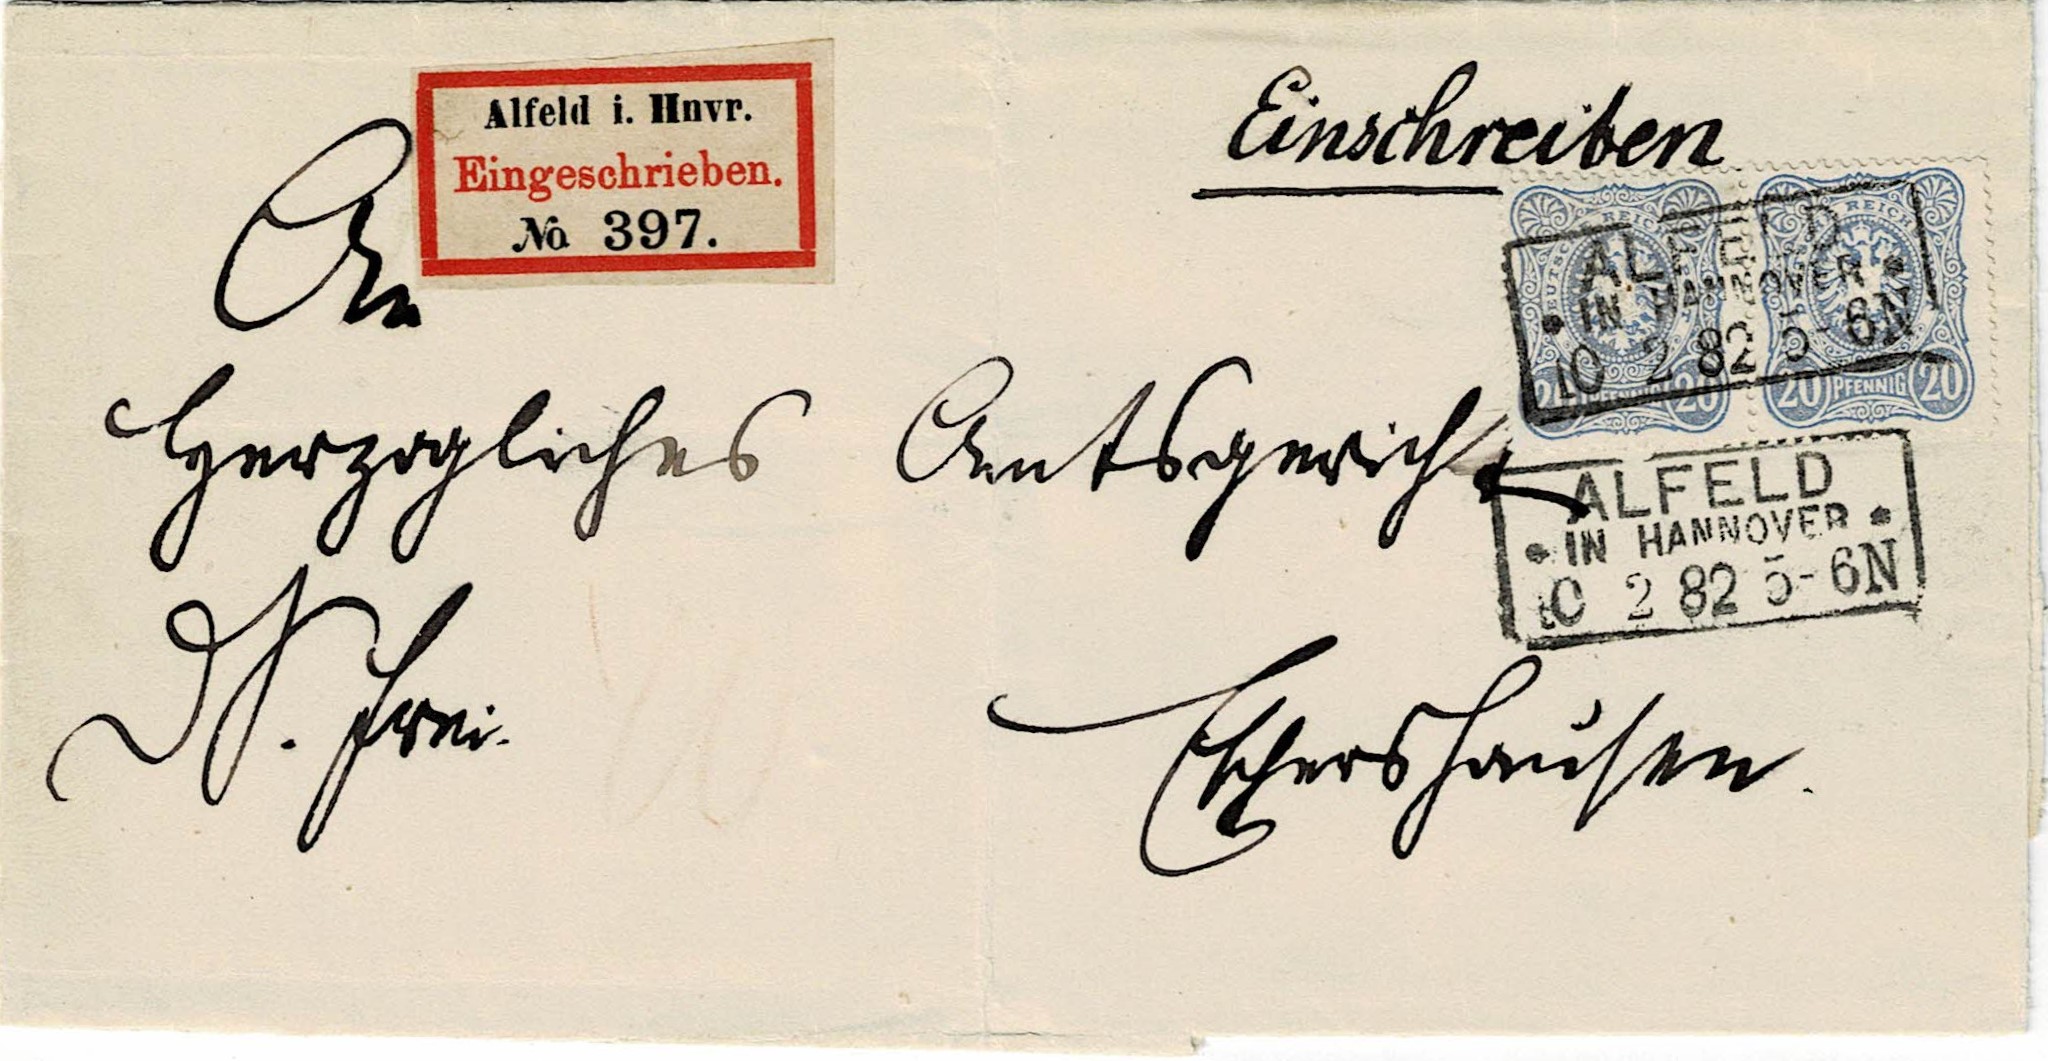 Alfeld i. Hnvr.
Eingeschrieben.
No 397.
Einschreiben
An
Herzogliches Amtsgericht
frei.
Eschershausen.
ALFELD
IN HANNOVER
10 2 82 5-6N
REICH
20 PFENNIG 20
REICH
20 PFENNIG 20
ALFELD
IN HANNOVER
10 2 82 5-6N